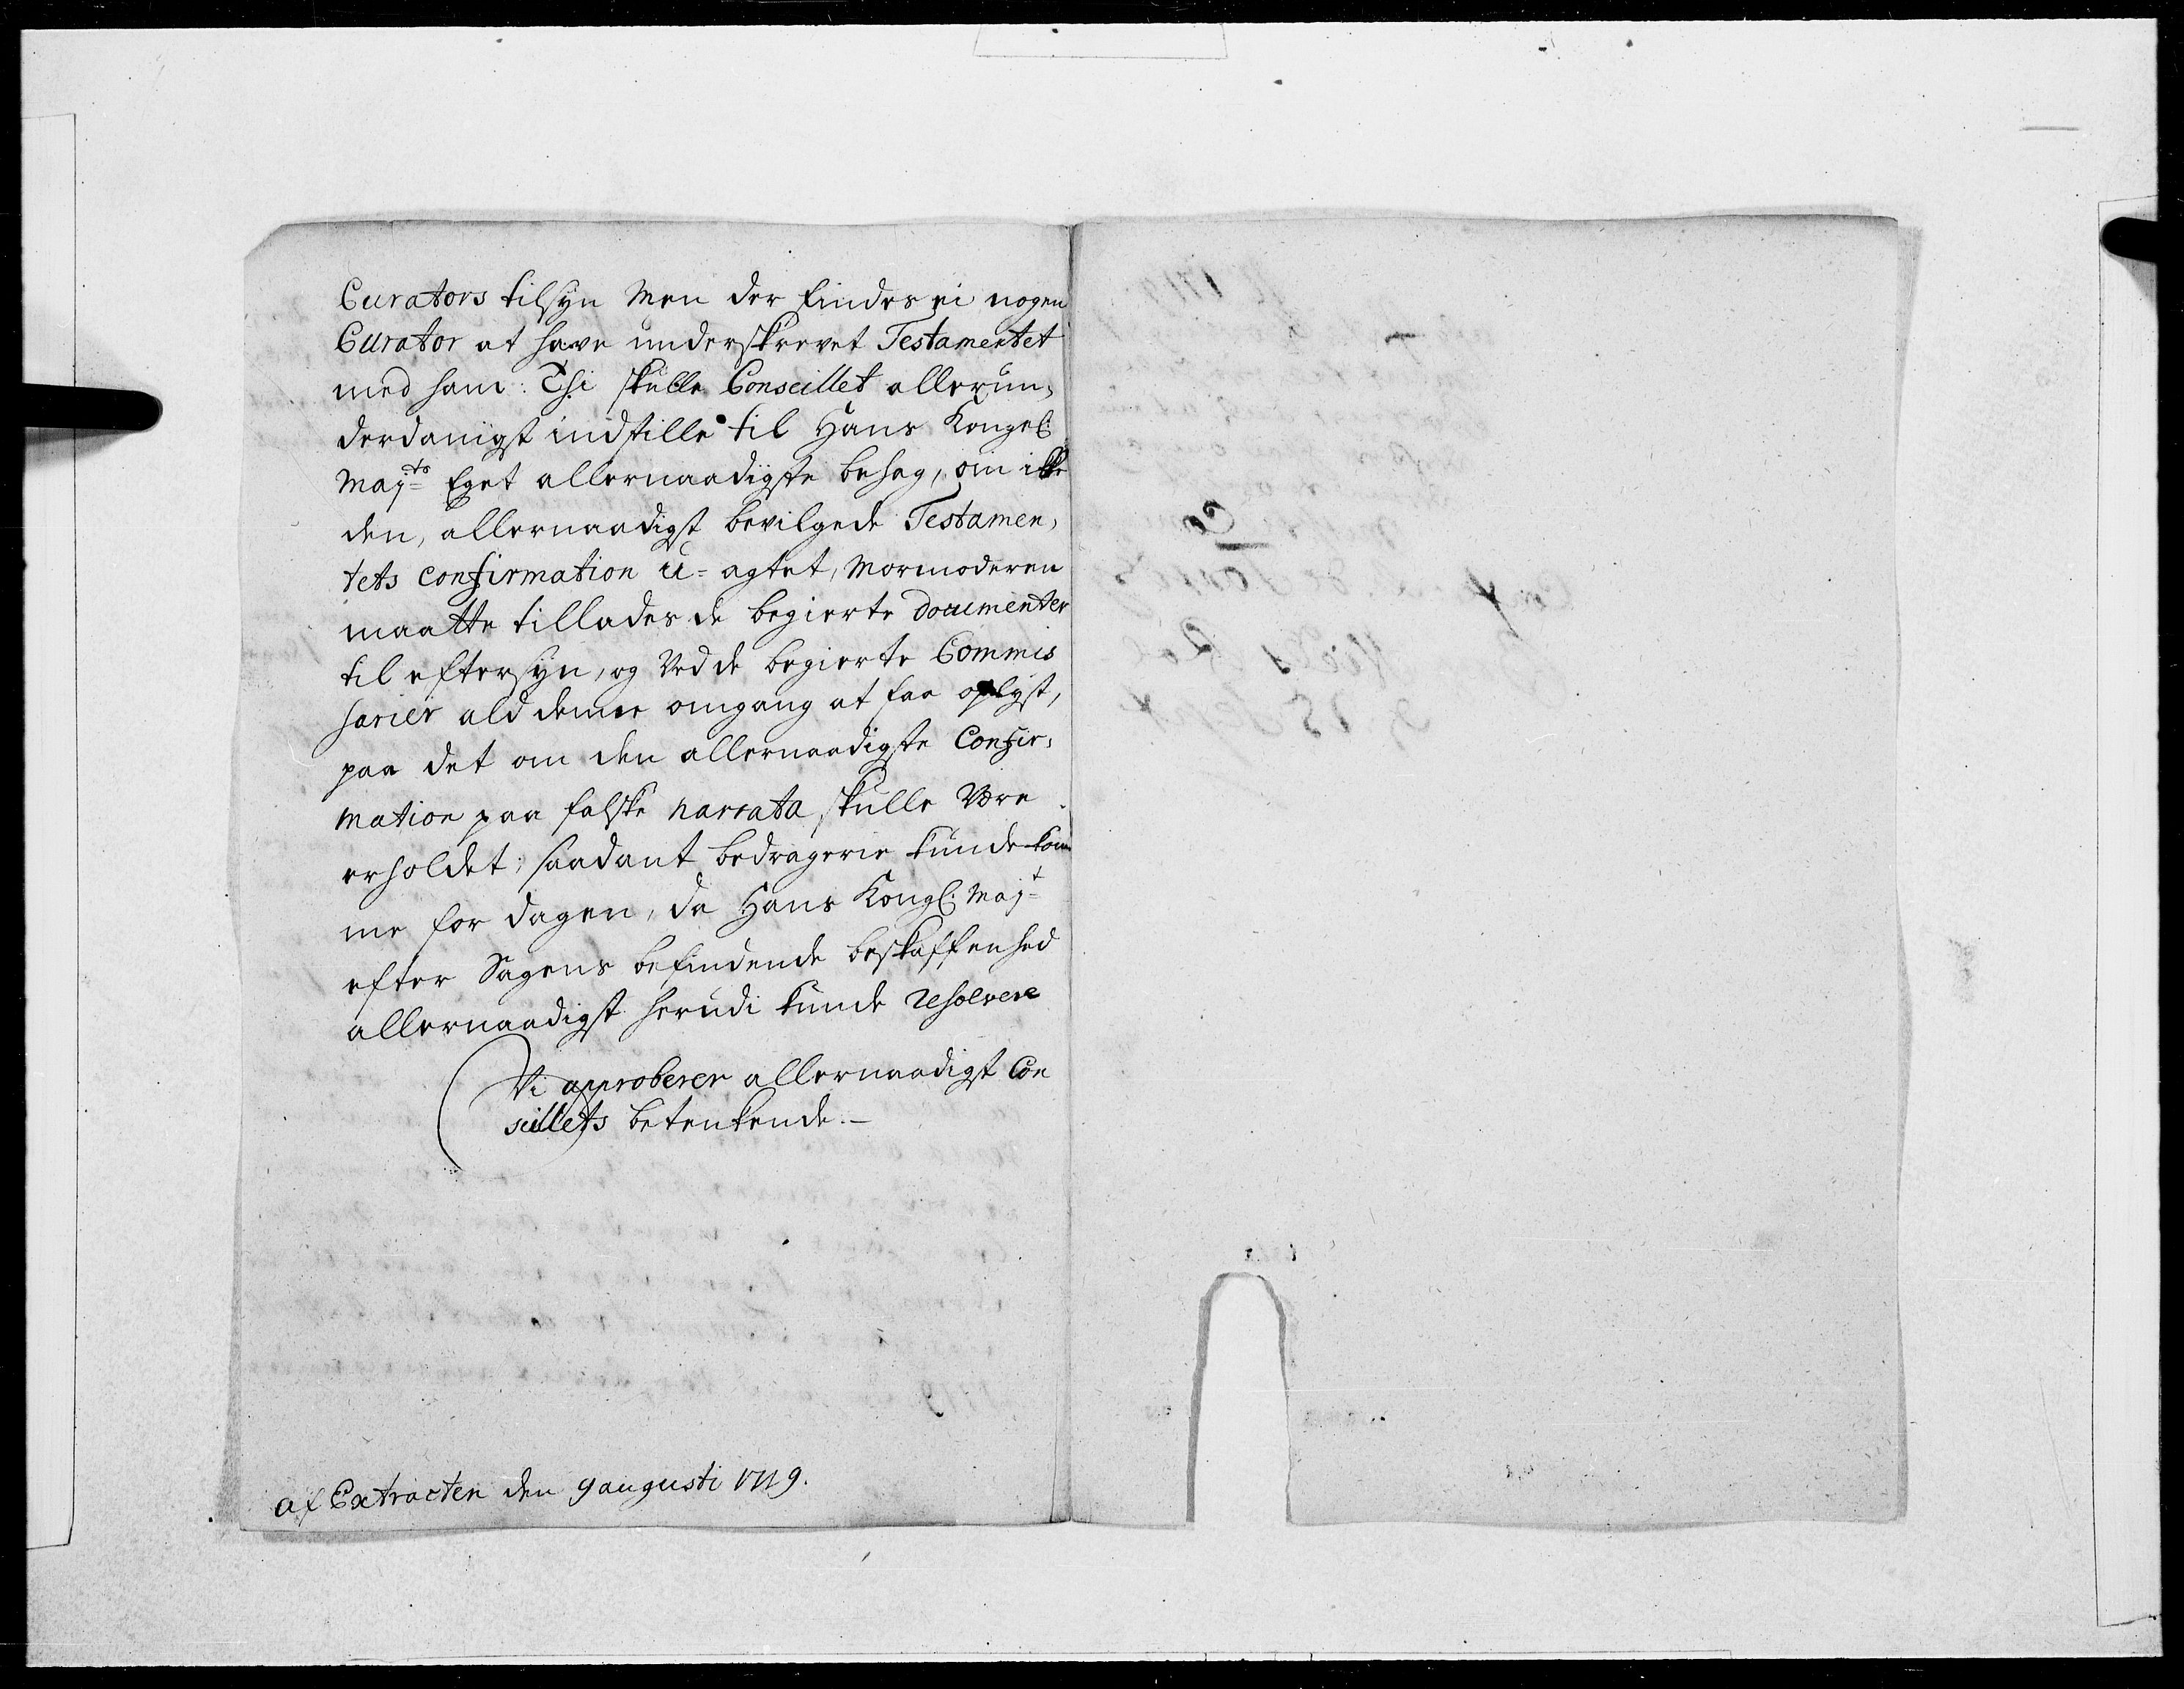 Curators tilsyn Men der findes ei nogen
Curator at have underskrevet Testamentet
med ham: Thi skulle Conseillet allerun,
derdanigst indstille til Hans Kongel:
Majts Eget allernaadigste behag, om ikke
den, allernaadigst bevilgede Testamen,
tets confirmation u-agtet, Mormoderen
maatte tillades de begierte documenter
til eftersyn, og Ved de begierte Commis
sarier ald denne omgang at faa oplyst,
paa det om den allernaadigste Confir,
mation paa falske narrata skulle Være
erholdet; saadant bedragerie kunde kom
me for dagen, da Hans Kongl: Majt
efter Sagens befindende beskaffenhed
allernaadigst herudi kunde resolvere
Vi approberer allernaadigst Con
seillets betenkende.
af Extracten den 9 augusti 1719.